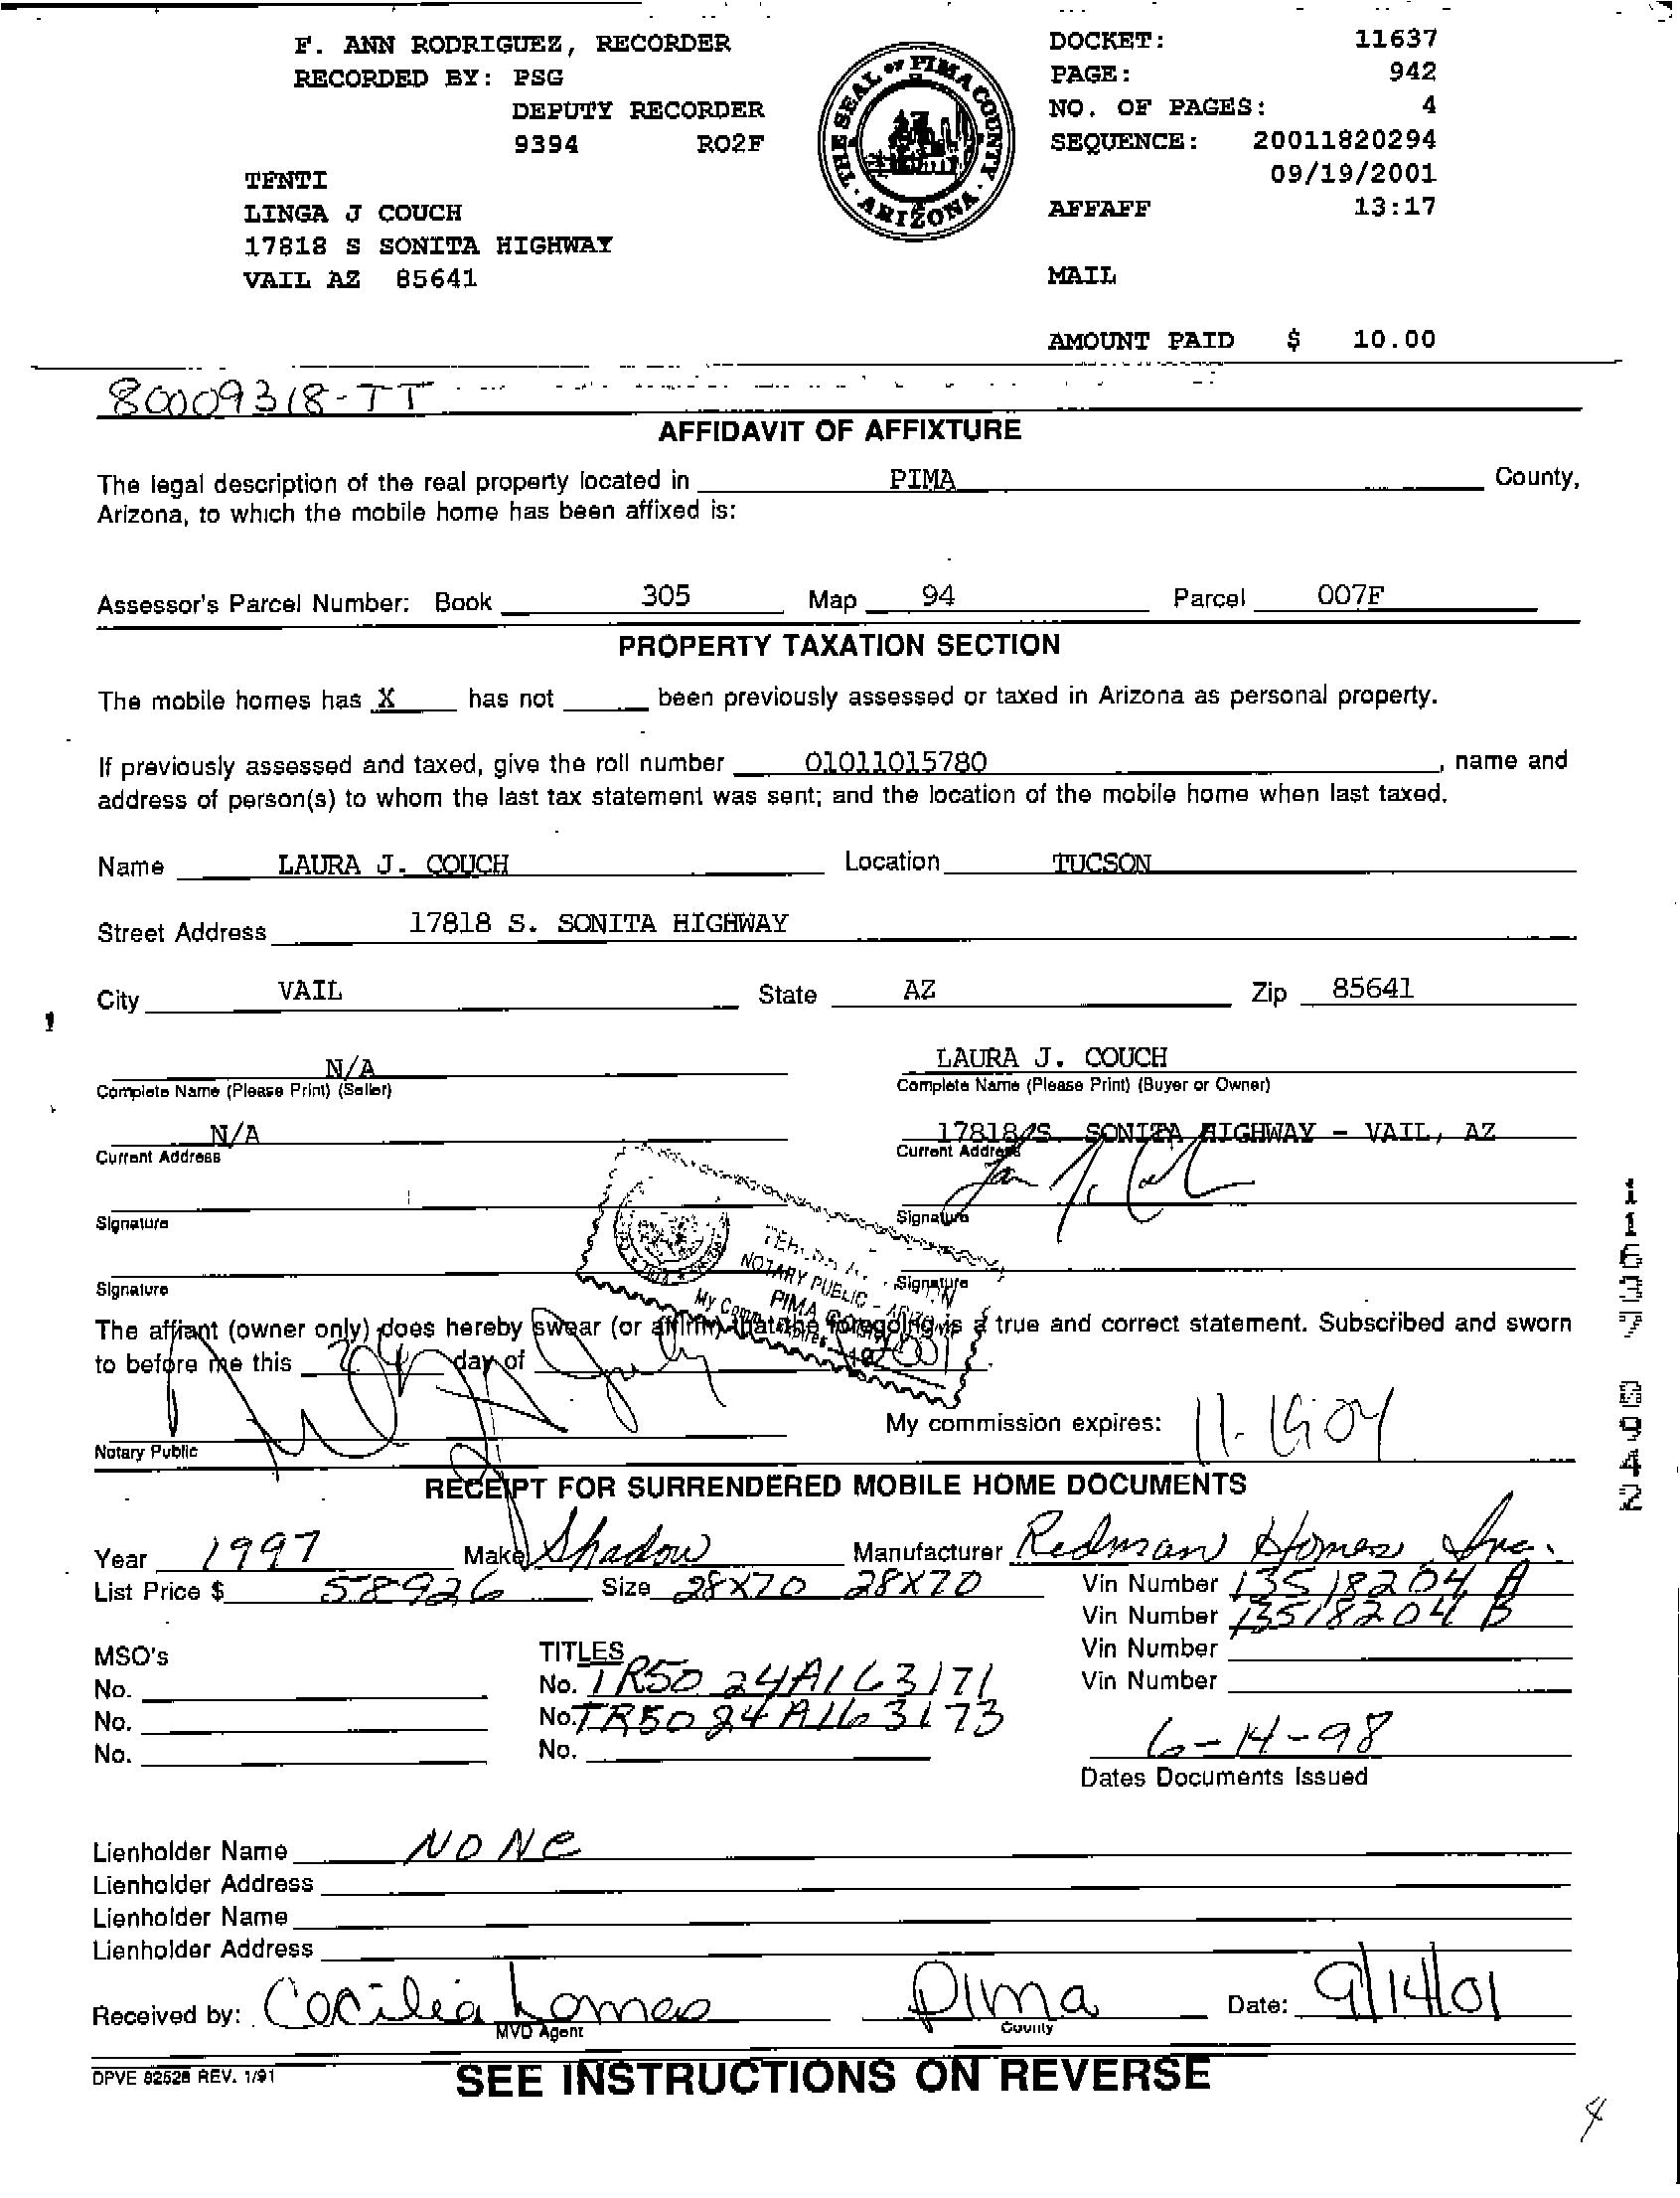 F. ANN RODRIGUEZ, RECORDER
RECORDED BY: PSG
DEPUTY RECORDER
9394 RO2F
TFNTI
LINGA J COUCH
17818 S SONITA HIGHWAY
VAIL AZ 85641
THE SEAL OF PIMA COUNTY · ARIZONA ·
DOCKET: 11637
PAGE: 942
NO. OF PAGES: 4
SEQUENCE: 20011820294
09/19/2001
AFFAFF 13:17
MAIL
AMOUNT PAID $ 10.00
80009318-TT
AFFIDAVIT OF AFFIXTURE
The legal description of the real property located in PIMA County,
Arizona, to which the mobile home has been affixed is:
Assessor's Parcel Number: Book 305 Map 94 Parcel 007F
PROPERTY TAXATION SECTION
The mobile homes has X has not been previously assessed or taxed in Arizona as personal property.
If previously assessed and taxed, give the roll number 01011015780, name and
address of person(s) to whom the last tax statement was sent; and the location of the mobile home when last taxed.
Name LAURA J. COUCH Location TUCSON
Street Address 17818 S. SONITA HIGHWAY
City VAIL State AZ Zip 85641
N/A LAURA J. COUCH
Complete Name (Please Print) (Seller) Complete Name (Please Print) (Buyer or Owner)
N/A 17818 S. SONITA HIGHWAY - VAIL, AZ
Current Address Current Address
Signature Signature
Signature Signature
NOTARY PUBLIC -
PIMA
My Comm. Expires
The affiant (owner only) does hereby swear (or affirm) that the foregoing is a true and correct statement. Subscribed and sworn
to before me this day of
My commission expires:
Notary Public
RECEIPT FOR SURRENDERED MOBILE HOME DOCUMENTS
Year 1997 Make Shadow Manufacturer Redman Homes Inc.
List Price $ 58926 Size 28X70 28X70 Vin Number 13518204 A
Vin Number 13518204 B
MSO's TITLES Vin Number
No. No. TR50 24A163171 Vin Number
No. No. TR50 24A163173
No. No. 6-14-98
Dates Documents Issued
Lienholder Name NONE
Lienholder Address
Lienholder Name
Lienholder Address
Received by: Cecilia Pima Date: 9/14/01
MVD Agent County
DPVE 82528 REV. 1/91 SEE INSTRUCTIONS ON REVERSE
4
11637 0942